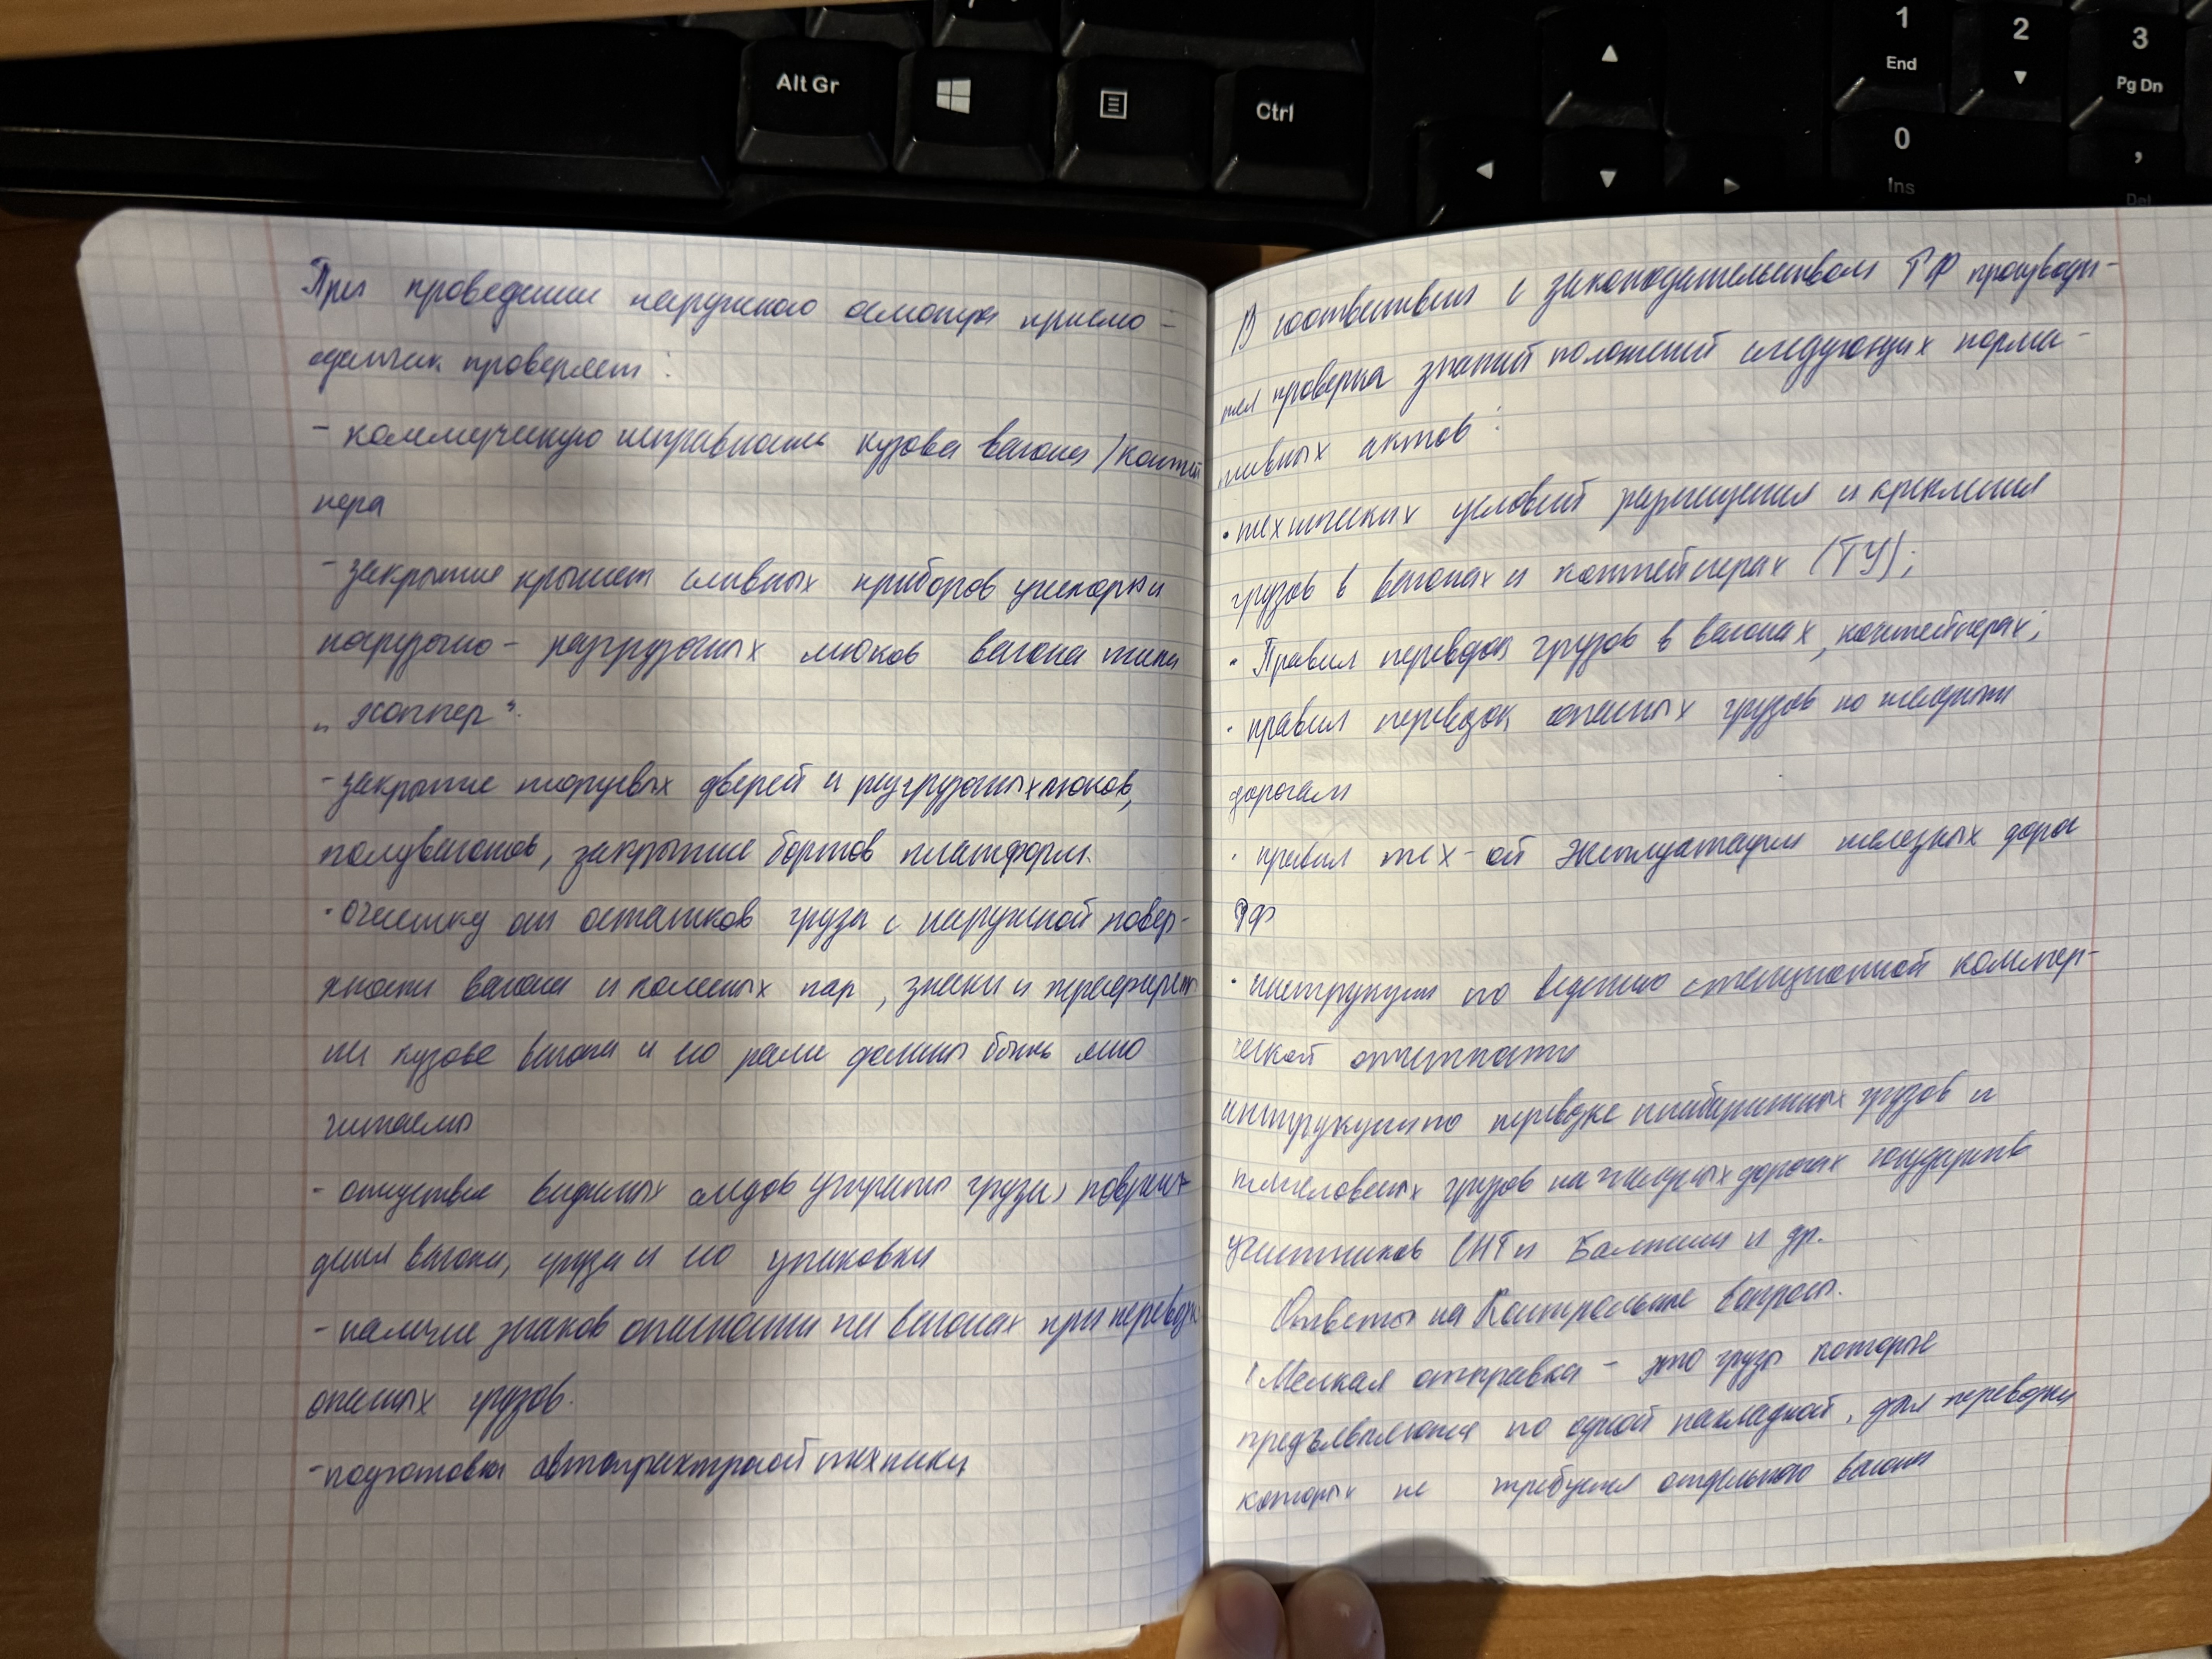 Alt Gr
Ctrl
1
End
2
3
Pg Dn
0
Ins
,
Del
При проведении наружного осмотра приемо-
сдатчик проверяет:
- коммерческую исправность кузова вагона / контей
нера
- закрытие крышек сливных приборов цистерн и
погрузочно-разгрузочных люков вагона типа
„хоппер“.
- закрытие торцевых дверей и разгрузочных люков,
полувагонов, закрытие бортов платформ.
- очистку от остатков груза с наружной повер-
хности вагона и колесных пар, знаки и трафареты
на кузове вагона и его раме должны быть ясно
читаемы
- отсутствие видимых следов утраты груза, повреж-
дения вагона, груза и его упаковки
- наличие знаков опасности на вагонах при перевозке
опасных грузов.
- подготовка автотракторной техники
В соответствии с законодательством РФ производи-
тся проверка знаний положений следующих норма-
тивных актов:
· технических условий размещения и крепления
грузов в вагонах и контейнерах (ТУ);
· Правил перевозок грузов в вагонах, контейнерах;
· правил перевозок опасных грузов по железным
дорогам
· правил тех-ой эксплуатации железных дорог
РФ
· инструкции по ведению станционной коммер-
ческой отчетности
инструкции по перевозке негабаритных грузов и
тяжеловесных грузов на железных дорогах государств
участников СНГ и Балтии и др.
Ответы на Контрольные вопросы.
1 Мелкая отправка - это грузы которые
предъявляются по одной накладной, для перевозки
которых не требуется отдельного вагона